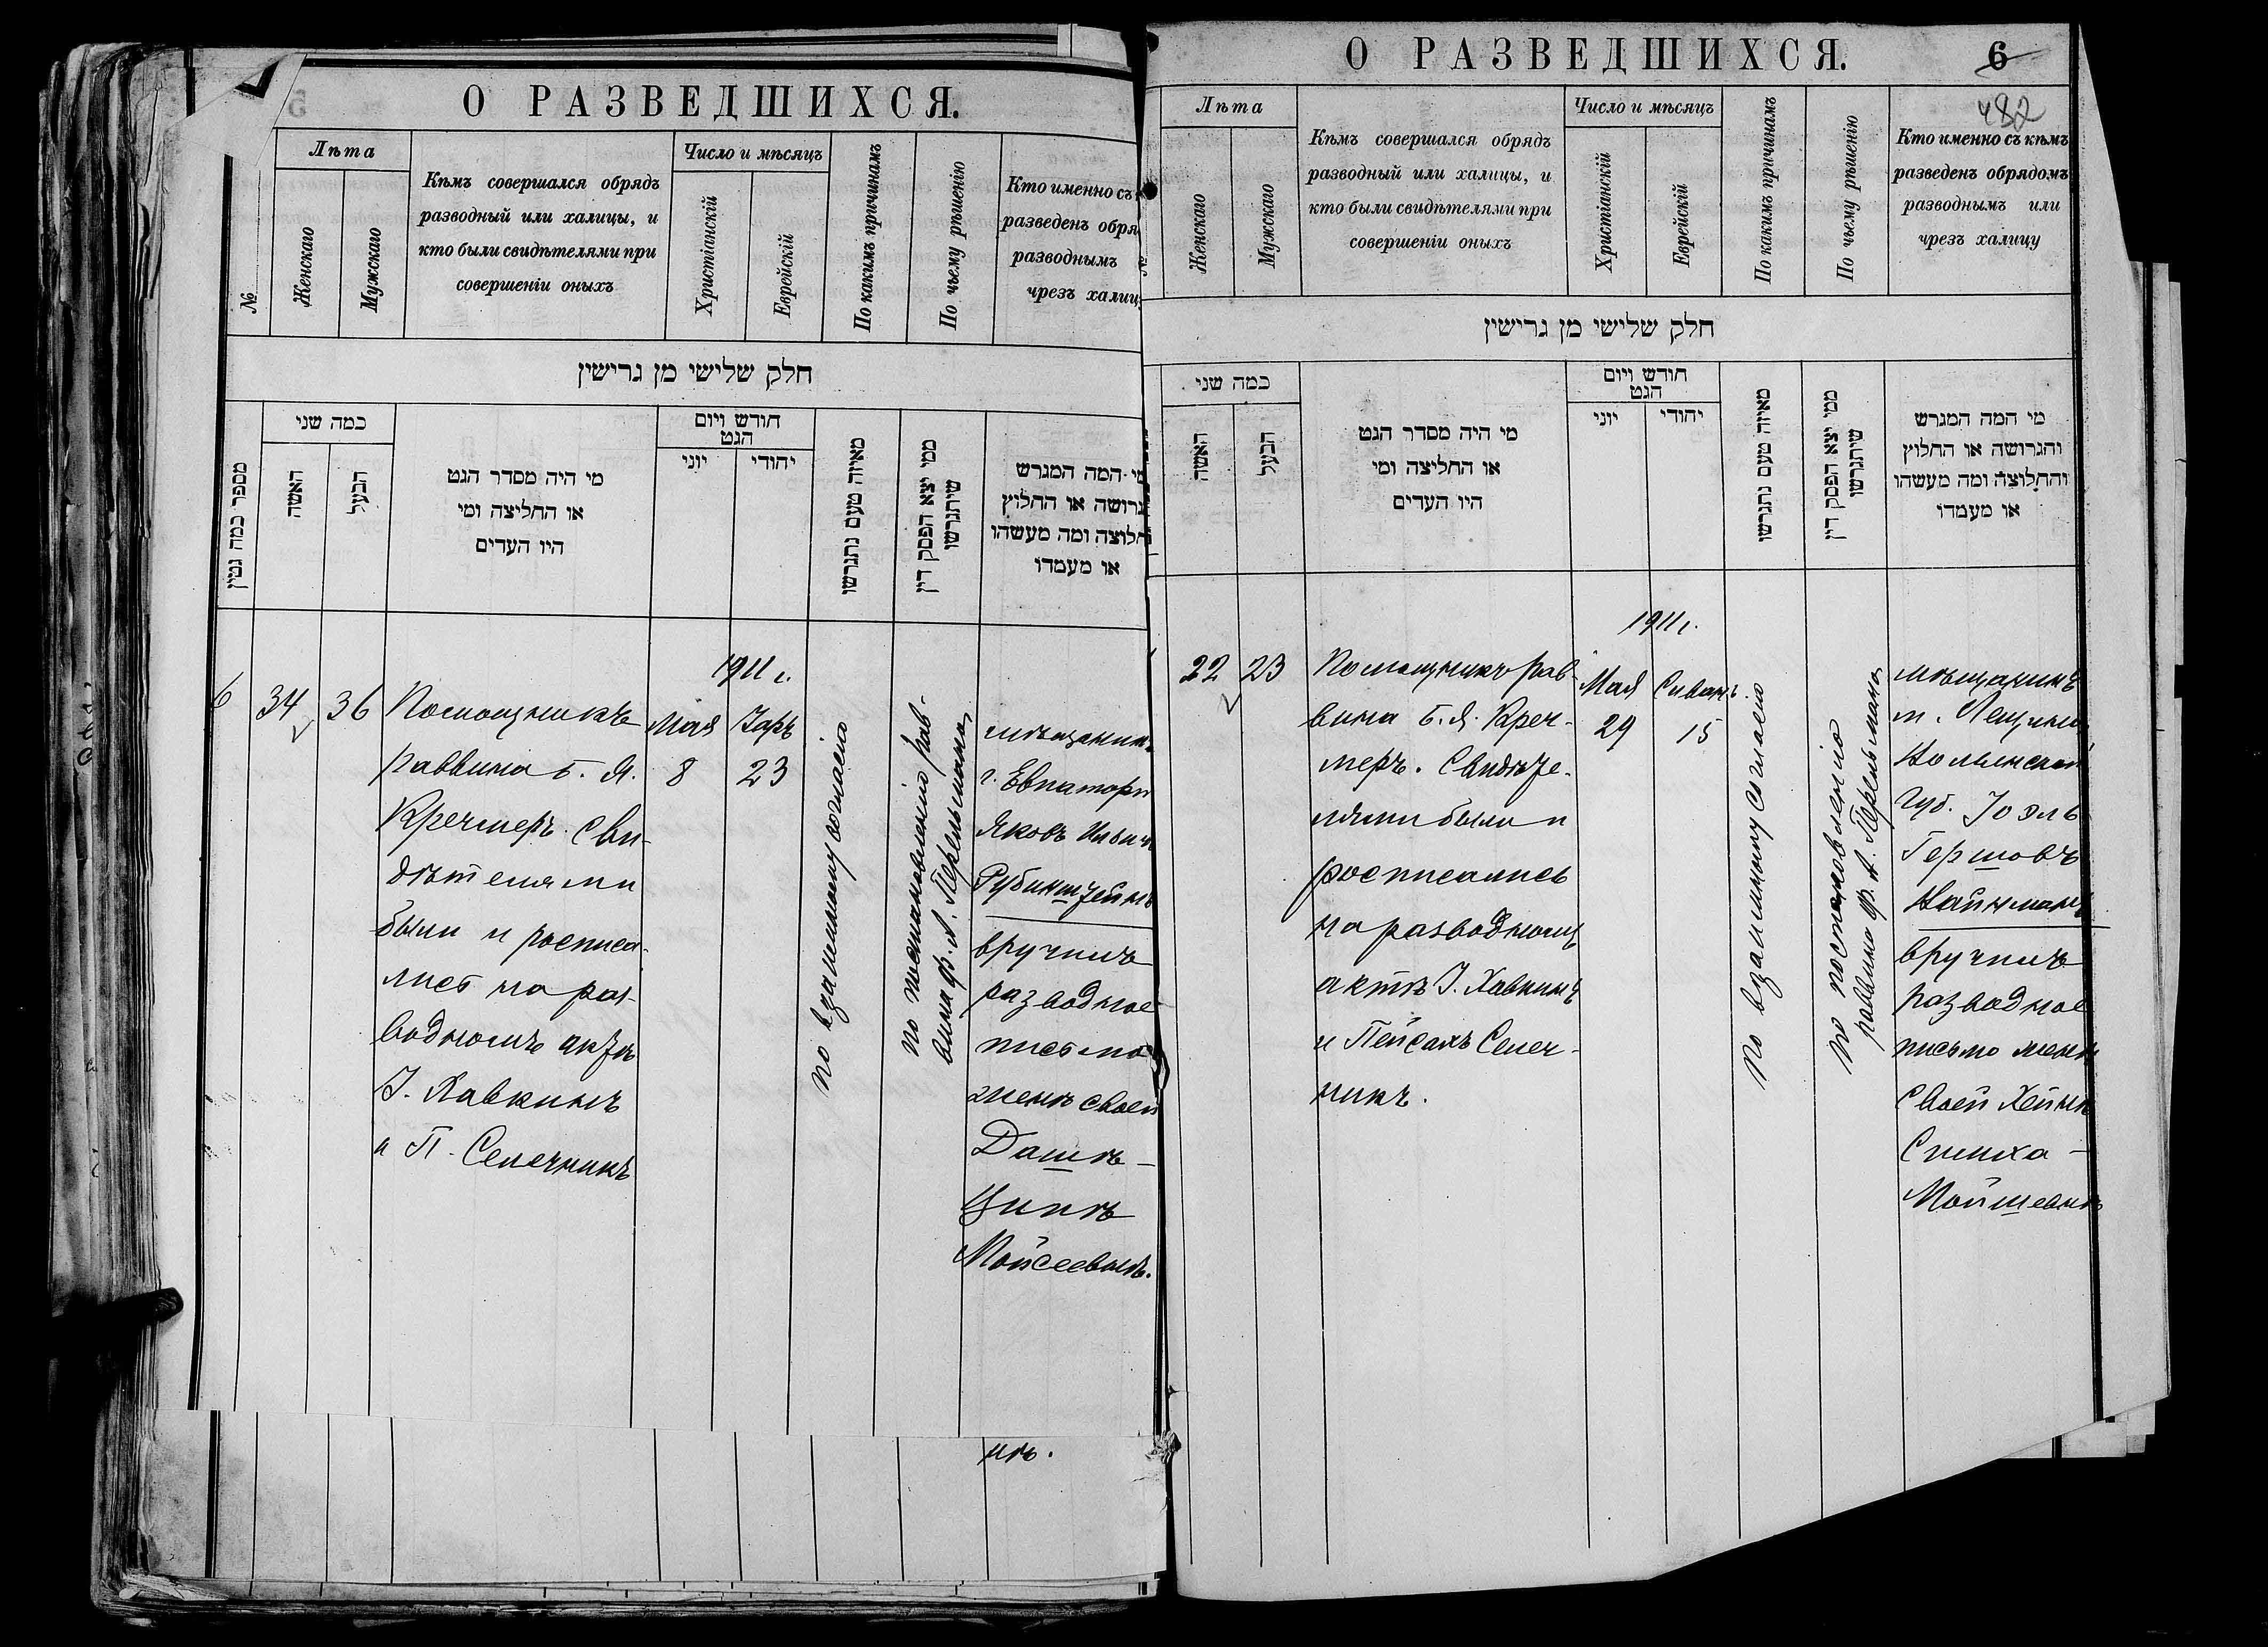 О РАЗВЕДШИХСЯ.
№
Лѣта
Женскаго
Мужскаго
Кѣмъ совершался обрядъ
разводный или халицы, и
кто были свидѣтелями при
совершеніи оныхъ
Число и мѣсяцъ
Христіанскій
Еврейскій
По какимъ причинамъ
По чьему рѣшенію
Кто именно съ
разведенъ обря
разводнымъ
чрезъ халиц
חלק שלישי מן גרישין
מספר כמה גטין
כמה שני
האשה
הבעל
מי היה מסדר הגט
או החליצה ומי
היו העדים
חודש ויום
הגט
יוני
יהודי
מאיזה טעם נתגרשו
ממי יצא הפסק דין
שיתגרשו
מי המה המגרש
גרושה או החלוץ
חלוצה ומה מעשהו
או מעמדו
6
34
36
Помощникъ
раввина Б. Я.
Кречмеръ. Сви-
дѣтелями
были и росписа-
лись на раз-
водномъ актѣ
І. Хавкинъ
и П. Селечникъ
1911 г.
Мая
8
Іаръ
23
по взаимному согласію
по постановленію рав-
вина Ф. А. Перельмана
мѣщанинъ
г. Евпаторіи
Яковъ
Рубинштейнъ
вручилъ
разводное
письмо
женѣ своей
Дашѣ-
Ципѣ
Мойсеевнѣ.
нѣ.
О РАЗВЕДШИХСЯ.
6
482
Лѣта
Женскаго
Мужскаго
Кѣмъ совершался обрядъ
разводный или халицы, и
кто были свидѣтелями при
совершеніи оныхъ
Число и мѣсяцъ
Христіанскій
Еврейскій
По какимъ причинамъ
По чьему рѣшенію
Кто именно съ кѣмъ
разведенъ обрядомъ
разводнымъ или
чрезъ халицу
חלק שלישי מן גרישין
כמה שני
האשה
הבעל
מי היה מסדר הגט
או החליצה ומי
היו העדים
חודש ויום
הגט
יוני
יהודי
מאיזה טעם נתגרשו
ממי יצא הפסק דין
שיתגרשו
מי המה המגרש
והגרושה או החלוץ
והחלוצה ומה מעשהו
או מעמדו
22
23
Помощникъ рав-
вина Б. Я. Креч-
меръ. Свидѣте-
лями были и
росписались
на разводномъ
актѣ І. Хавкинъ
и Пейсахъ Селеч-
никъ.
1911 г.
Мая
29
Сиванъ
15
по взаимному согласію
по постановленію
раввина Ф. А. Перельмана
мѣщанинъ
м.
Волынской
губ. Іоэль
Гершовъ
Вайнманъ
вручилъ
разводное
письмо женѣ
своей Хейнѣ
Симха-
Мойшевнѣ